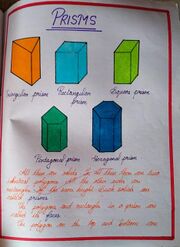 PRISMS
Triangular prism
Rectangular prism
Square prism
Pentagonal prism
Hexagonal prism
All these are solids. In all these are two
identical polygons. All the other sides are
rectangles of the same height. Such solids are
called prisms.
The polygons and rectangles in a prism are
called its faces.
The polygon on the top and bottom are